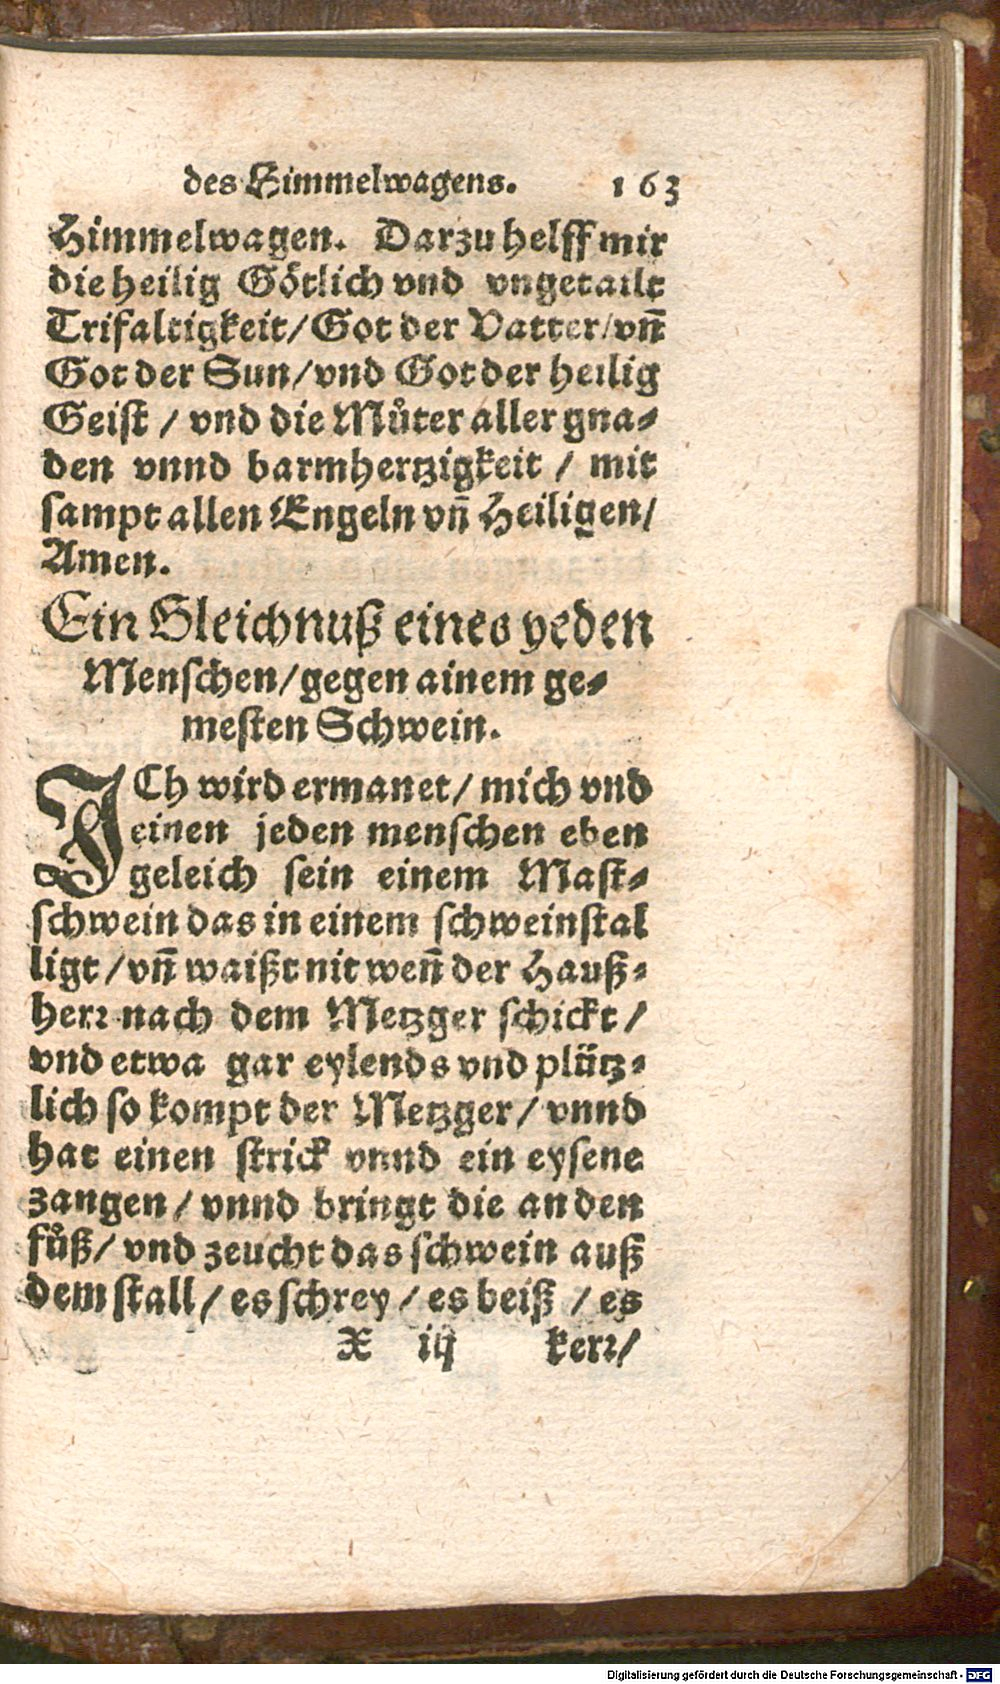 des Himmelwagens. 163
Himmelwagen. Darzu helff mir
die heilig Götlich vnd vngetailt
Trifaltigkeit/ Got der Vatter/ vn̄
Got der Sun/ vnd Got der heilig
Geist / vnd die Můter aller gna⸗
den vnnd barmhertzigkeit / mit
sampt allen Engeln vn̄ Heiligen/
Amen.
Ein Gleichnuß eines yeden
Menschen/ gegen ainem ge⸗
mesten Schwein.
ICh wird ermanet/ mich vnd
einen jeden menschen eben
geleich sein einem Mast⸗
schwein das in einem schweinstal
ligt / vn̄ waißt nit wen̄ der Hauß⸗
herꝛ nach dem Metzger schickt /
vnd etwa gar eylends vnd plütz⸗
lich so kompt der Metzger / vnnd
hat einen strick vnnd ein eysene
zangen / vnnd bringt die an den
fůß/ vnd zeucht das schwein auß
dem stall / es schrey / es beiß / es
X iij kerꝛ/
Digitalisierung gefördert durch die Deutsche Forschungsgemeinschaft - DFG